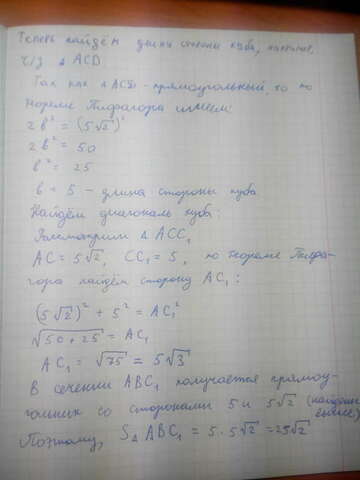 Теперь найдём длину стороны куба, например,
ч/з Δ ACD
Так как Δ ACD - прямоугольный, то по
теореме Пифагора имеем:
2b² = (5√2)²
2b² = 50
b² = 25
b = 5 - длина стороны куба
Найдём диагональ куба:
Рассмотрим Δ ACC₁
AC = 5√2, CC₁ = 5, по теореме Пифа-
гора найдём сторону AC₁:
(5√2)² + 5² = AC₁²
√50+25 = AC₁
AC₁ = √75 = 5√3
В сечении ABC₁ получается прямоу-
гольник со сторонами 5 и 5√2 (найдены
выше)
Поэтому, S_Δ ABC₁ = 5·5√2 = 25√2